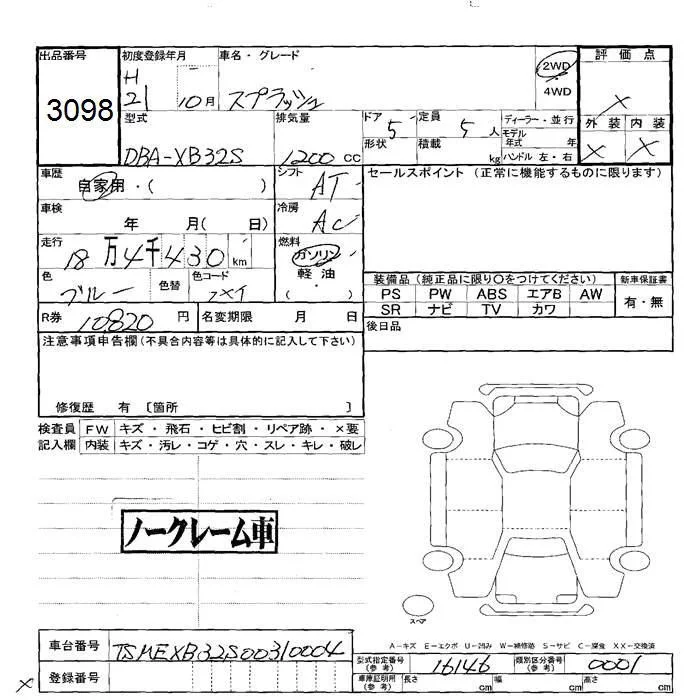 出品番号 初度登録年月 車名・グレード 2WD 評価点
3098 H 21 10月 スプラッシュ 4WD ×
型式 排気量 ドア 5 定員 5人 ディーラー・並行 外装 内装
DBA-XB32S 1200cc 形状 積載 kg モデル年式 年 ハンドル 左・右 × ×
車歴 自家用・( ) シフト AT セールスポイント (正常に機能するものに限ります)
車検 年 月( 日) 冷房 AC
走行 18万4千430km 燃料 ガソリン 軽油 ( )
色 ブルー 色替 色コード 装備品 (純正品に限り〇をつけてください) 新車保証書
PS PW ABS エアB AW 有・無
SR ナビ TV カワ
R券 10820円 名変期限 月 日 後日品
注意事項申告欄(不具合内容等は具体的に記入して下さい)
修復歴 有 〔箇所 〕
検査員 FW キズ・飛石・ヒビ割・リペア跡・×要
記入欄 内装 キズ・汚レ・コゲ・穴・スレ・キレ・破レ
ノークレーム車
スペア
A-キズ E-エクボ U-凹み W-補修跡 S-サビ C-腐食 XX-交換済
車台番号 TSMEXB32S00310004 型式指定番号(参考) 16146 類別区分番号(参考) 0001
× 登録番号 車庫証明用(参考) 長さ cm 幅 cm 高さ cm